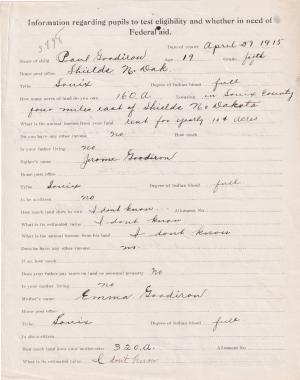 Information regarding pupils to test eligibility and whether in need of
Federal aid.
Date of report April 27 1915
Name of child Paul Goodiron Age 19 Grade fifth
Home post office Shields N. Dak.
Tribe Souix Degree of Indian blood full
How many acres of land do you own 160 A. Location in Souix County
four miles east of Shields No Dakota
What is the annual income from your land rent for
Do you have any other income no How much
Is your father living no
Father's name Jerome Goodiron
Home post office
Tribe Souix Degree of Indian blood full
Is he a citizen no
How much land does he own I dont know Allotment No.
What is its estimated value I dont know
What is the annual income from his land I dont know
Does he have any other income no.
If so, how much
Does your father pay taxes on land or personal property No
Is your mother living no
Mother's name Emma Goodiron
Home post office
Tribe Souix Degree of Indian blood full
Is she a citizen
How much land does your mother own 320 A. Allotment No.
What is its estimated value I dont know